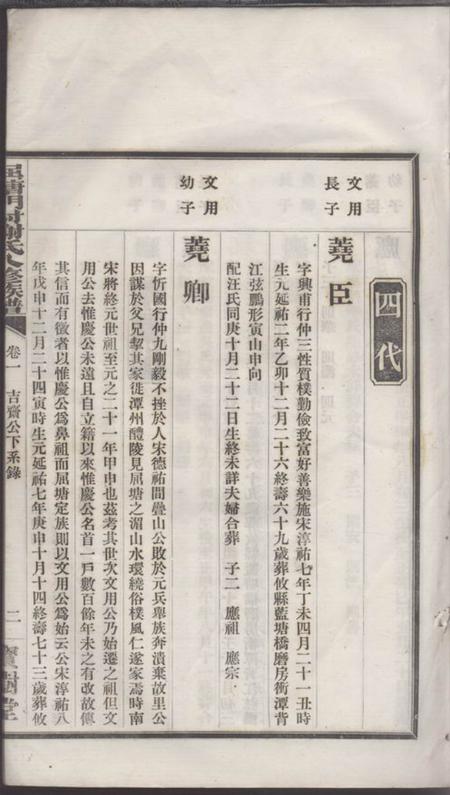 四代
文用長子
蕘臣
字興甫行仲三性質樸勤儉致富好善樂施宋淳祐七年丁未四月二十一丑時
生元延祐二年乙卯十二月二十六終壽六十九歲葬攸縣藍塘橋磨房衝潭背
江弦鵬形寅山申向
配汪氏同庚十月二十二日生終未詳夫婦合葬 子二 應祖 應宗
文用幼子
蕘卿
字忻國行仲九剛毅不挫於人宋德祐間疊山公敗於元兵舉族奔潰棄故里公
因謀於父兄挈其家徙潭州醴陵見屈塘之湄山水環繞俗樸風仁遂家焉時南
宋將終元世祖至元之二十一年甲申也茲考其世次文用公乃始遷之祖但文
用公去惟慶公未遠且自立籍以來惟慶公名首一戶數百餘年未之有改故傳
其信而有徵者以惟慶公為鼻祖而屈塘定族則以文用公為始云公宋淳祐八
年戊申十二月二十四寅時生元延祐七年庚申十月十四終壽七十三歲葬攸
卷一 吉齋公下系錄 二
寶樹堂